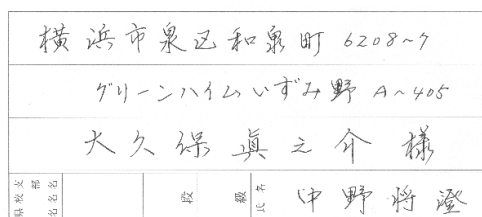 横浜市泉区和泉町 6208~7
グリーンハイムいずみ野 A~405
大久保眞之介様
県校支部名名名 段 級 氏名 中野将澄